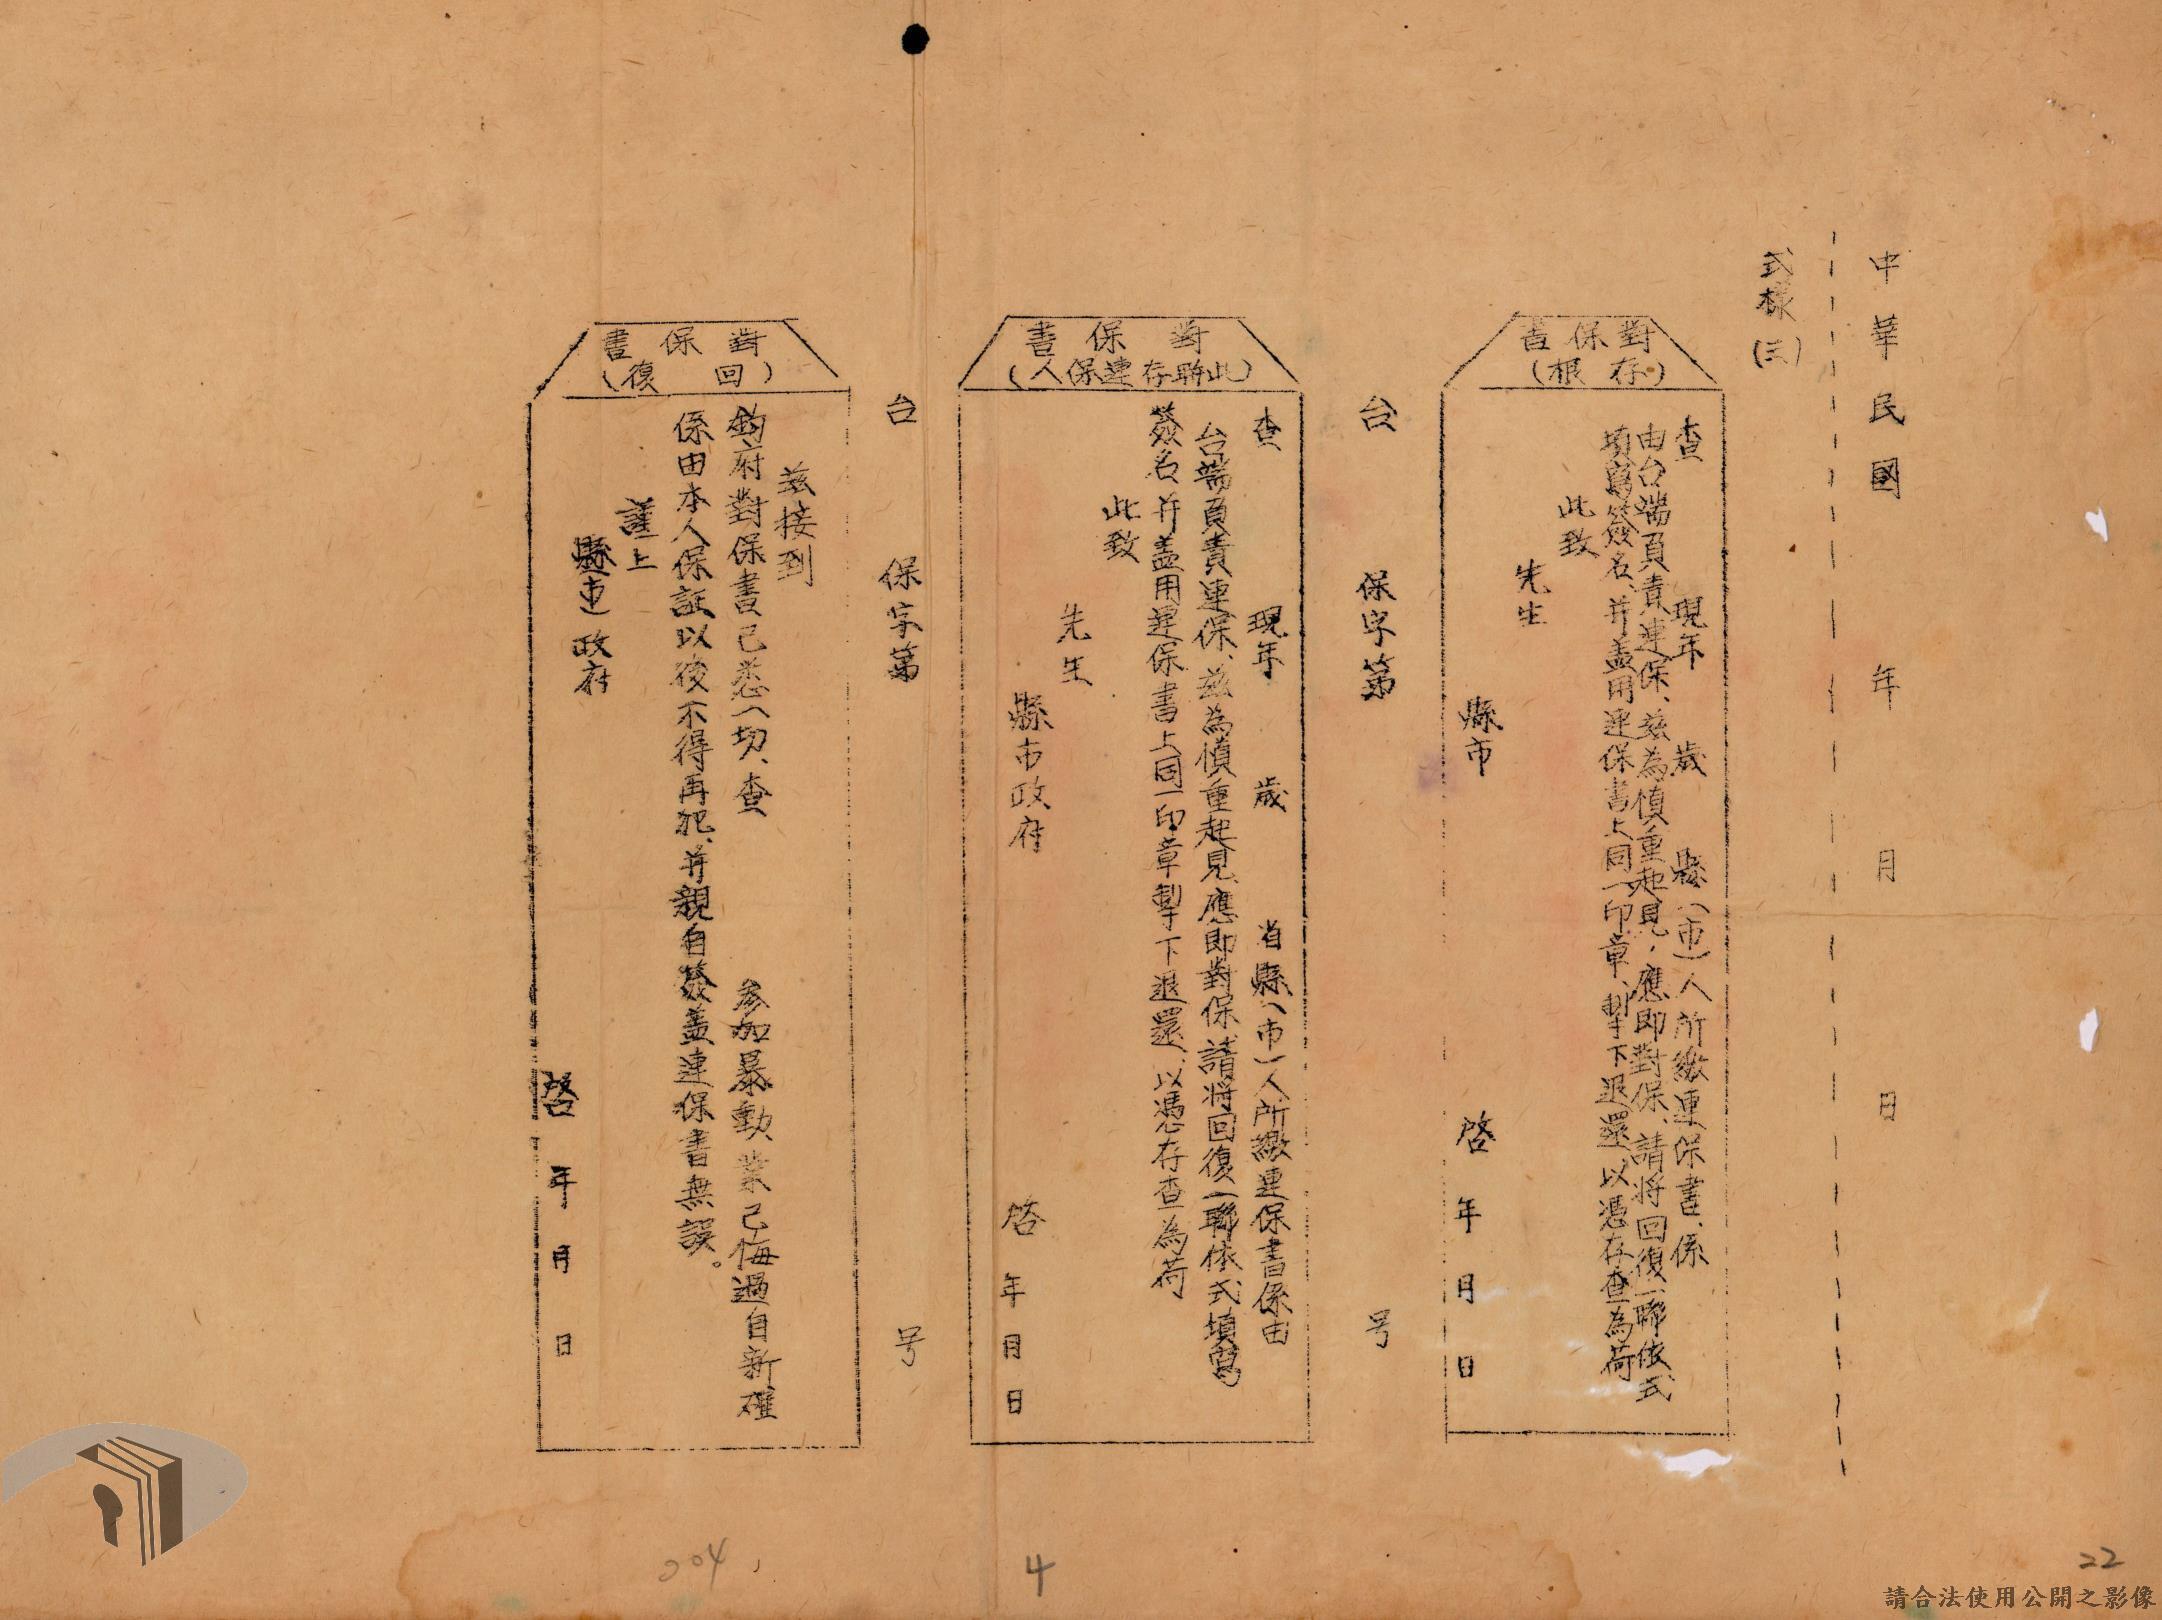 中華民國　年　月　日
式樣(三)
對保書
(存根)
查　現年　歲　縣(市)人所繳連保書、係
由台端負責連保、茲為慎重起見，應即對保、請將回復一聯依式
填寫簽名、并蓋用連保書上同一印章、掣下退還、以憑存查為荷
此致
先生
縣市
啓　年　月　日
台　保字第　号
對保書
(此聯存連保人)
查　現年　歲　省縣(市)人所繳連保書係由
台端負責連保、茲為慎重起見、應即對保、請將回復一聯依式填寫
簽名、并蓋用連保書上同一印章掣下退還、以憑存查為荷
此致
先生
縣市政府
啓　年　月　日
台　保字第　号
對保書
(回復)
茲接到
鈞府對保書已悉一切、查　參加暴動、業已悔過自新確
係由本人保証以後不得再犯、并親自簽蓋連保書無誤。
謹上
縣市政府
啓　年　月　日
004
4
22
請合法使用公開之影像